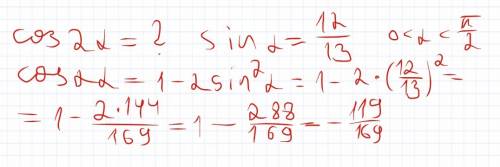 cos2α = ? sinα = 12/13 0<α<π/2
cos2α = 1 - 2sin²α = 1 - 2·(12/13)² =
= 1 - 2·144/169 = 1 - 288/169 = - 119/169